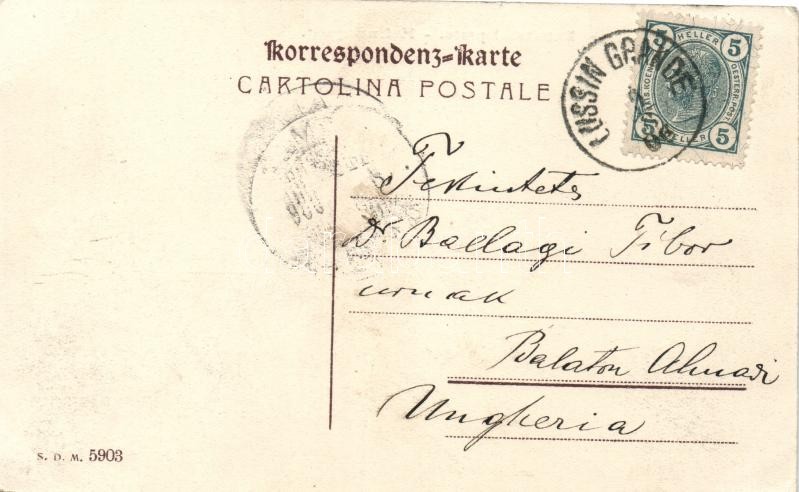 Korrespondenz=Karte
CARTOLINA POSTALE
LUSSIN GRANDE
5 HELLER 5
5 HELLER 5
Tekintetes
Dr. Ballagi Tibor
urnak
Balaton Almádi
Ungheria
S. D. M. 5903